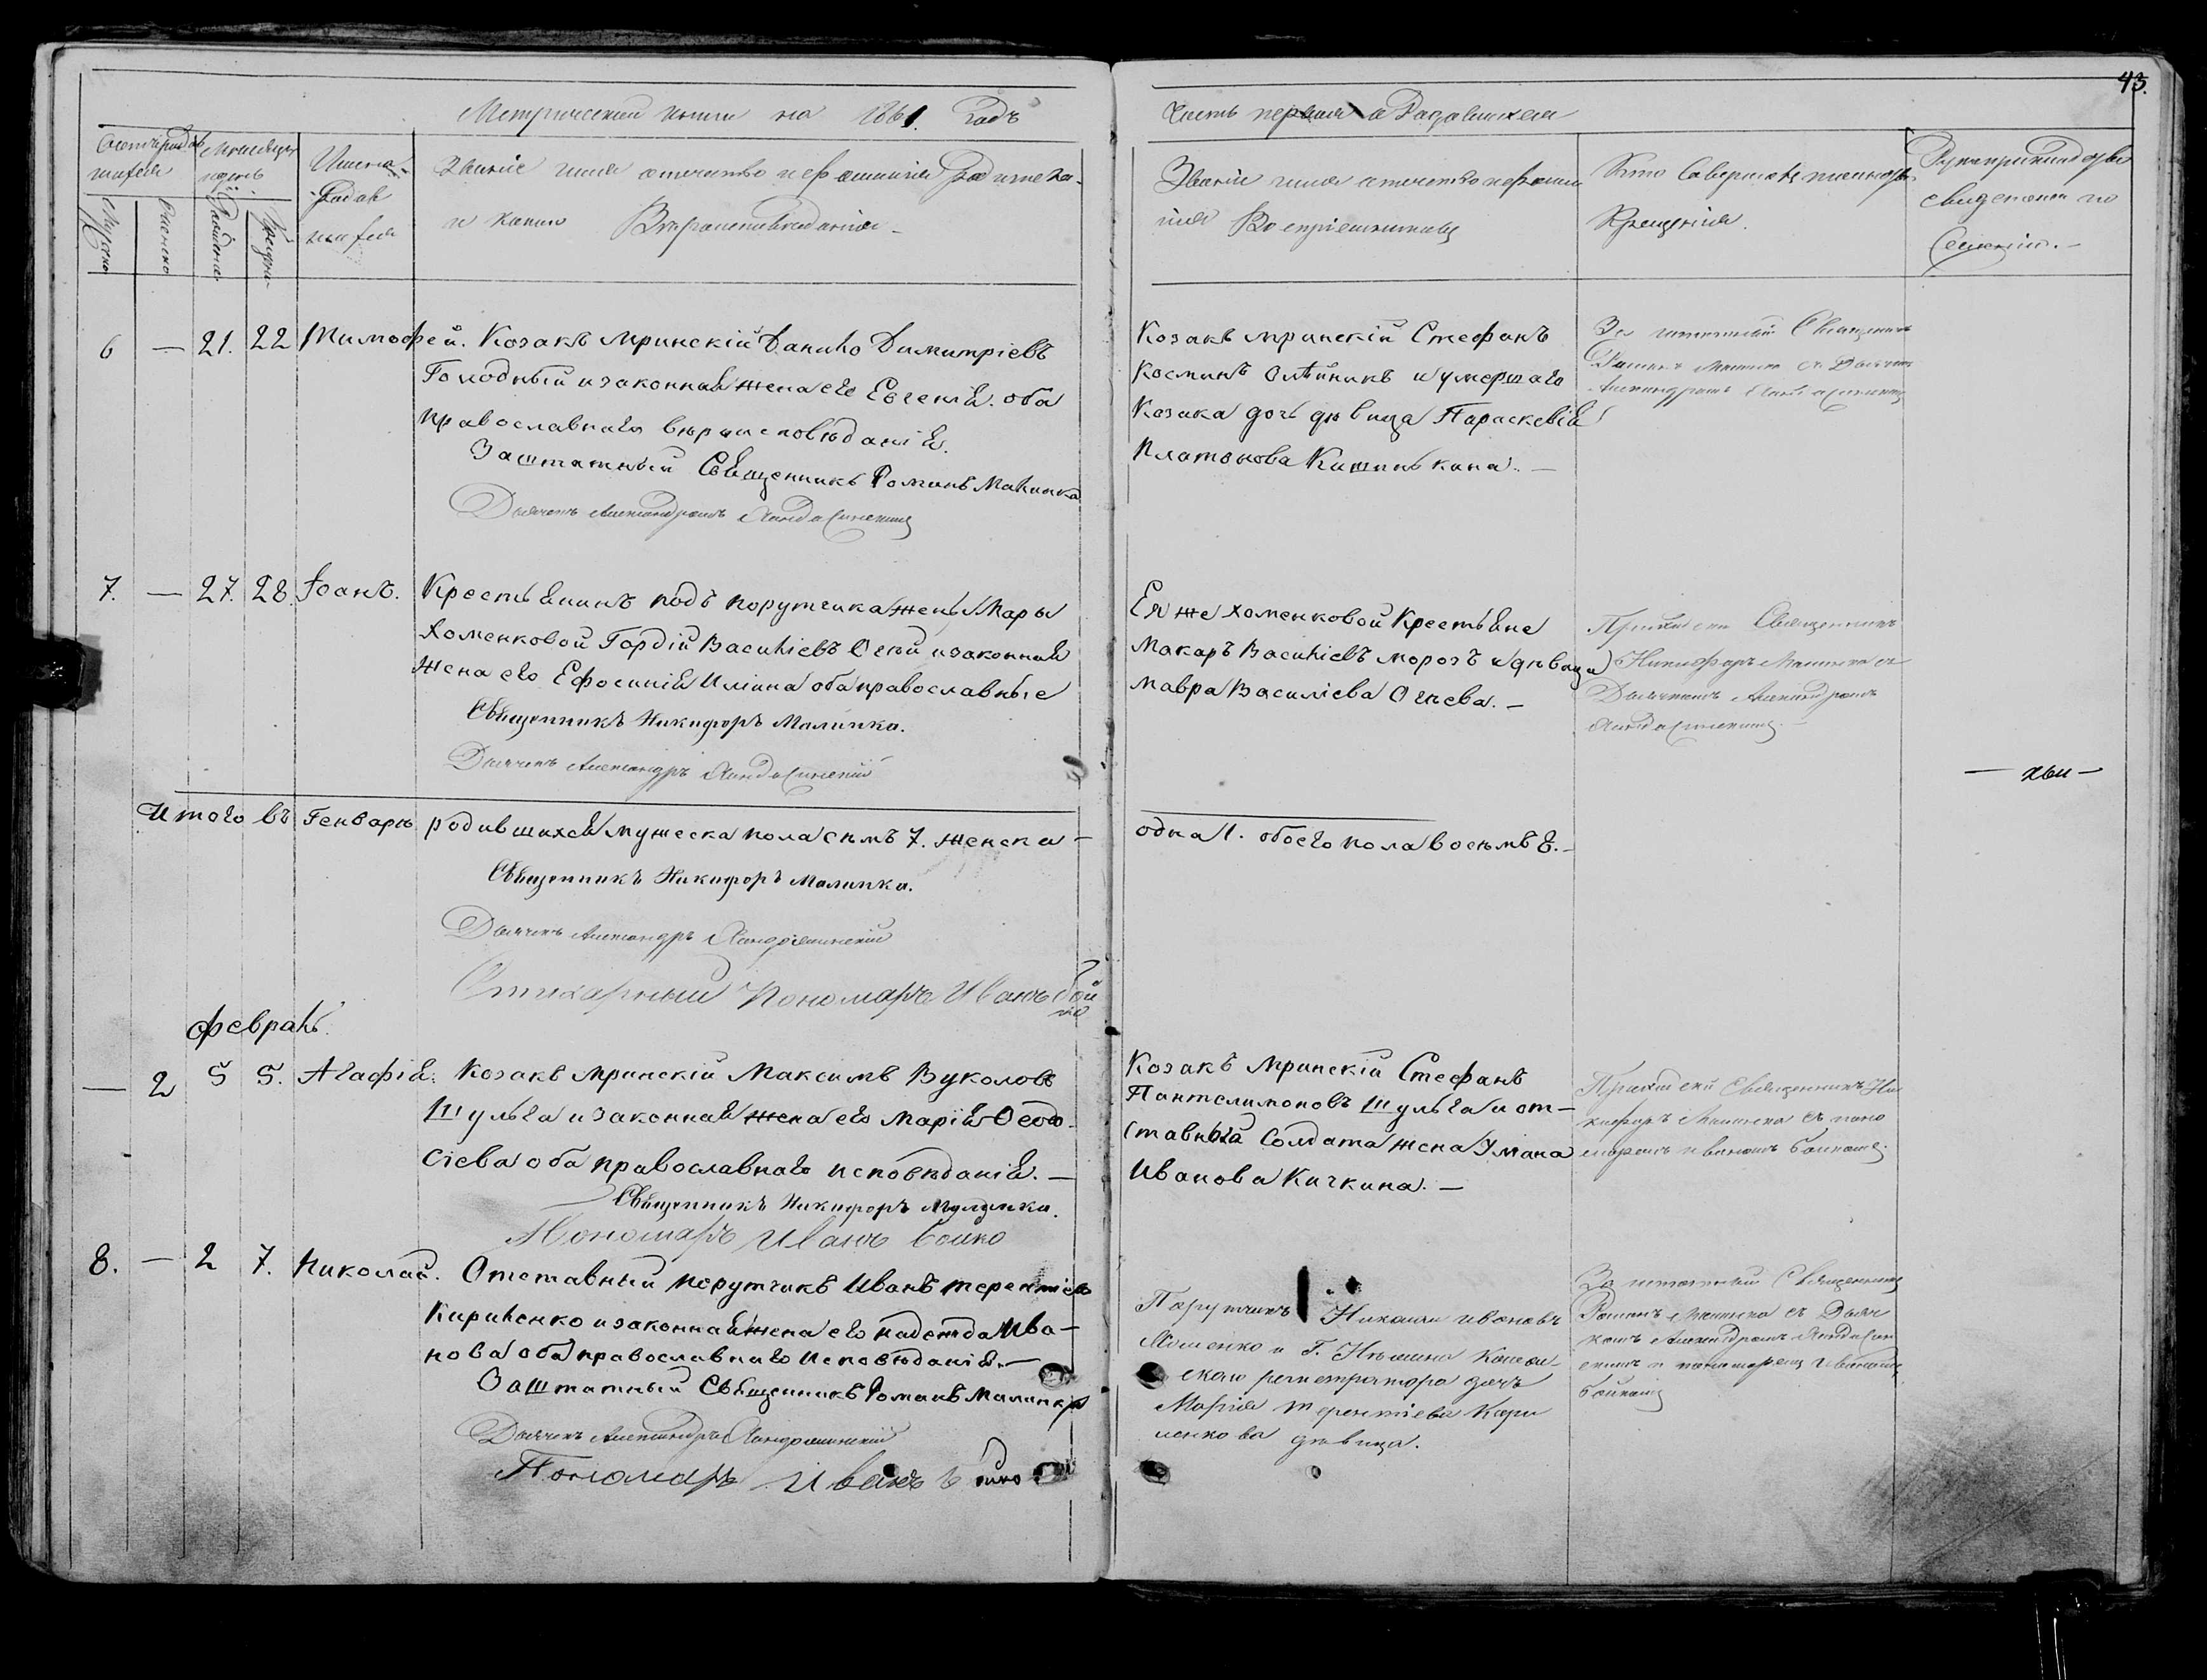 43.
Метрической книги на 1861. Годъ
Часть первая о Родившихся
Счетъ родившихся
Месяцъ и день
Имена Родившихся
Званіе имя отчество и фамилія Родителей
и какого Вероисповеданія
Мужска
Женска
Рожденія
Крещенія
Званіе имя отчество и фамилія
Воспріемниковъ
Кто Совершалъ таинство
Крещенія.
Рукоприкладство
свидетелей по
6 — 21. 22 Тимофей. Козакъ мринскій Данило Димитріевъ
Голодный и законная жена его Евгенія. оба
православнаго вероисповѣданія.
Заштатный Священникъ Романъ Малинка
Дьячекъ Александръ
Козакъ мринскій Стефанъ
Косминъ Олѣйникъ и умершаго
Козака дочь дѣвица Параскевія
Платонова Кишинькина. —
Заштатный Священникъ
Романъ Малинка съ Дьячкомъ
Александромъ
7. — 27. 28. Іоанъ. Крестьянинъ подъ порутчика жены Мары
Хоменковой Гордій Василіевъ Огній и законная
жена его Ефосинія Иліина оба православные
Священникъ Никифоръ Малинка.
Дьячекъ Александръ
Ея же Хоменковой Крестьяне
Макаръ Василіевъ морозъ и дѣвица
мавра Василіева Огнева. —
Приходскій Священникъ
Никифоръ Малинка съ
Дьячкомъ Александромъ
Итого въ Генварѣ родившихся мужеска пола семъ 7. женска —
одна 1. обоего пола восемъ 8. —
Священникъ Никифоръ Малинка.
Дьячекъ Александръ
Стихарный Пономарь Иванъ Бойко
февраль.
— 2 5 5. Агафія. Козакъ мринскій Максимъ Вуколовъ
Шульга и законная жена его Марія Ѳеодо-
сіева оба православнаго исповѣданія. —
Священникъ Никифоръ Малинка.
Пономарь Иванъ Бойко
Козакъ Мринскій Стефанъ
Пантелимоновъ Шульга и от-
ставнаго Солдата жена Уліана
Иванова Кичкина. —
Приходскій Священникъ Ни-
кифоръ Малинка съ поно
маремъ Иваномъ Бойкомъ
8. — 2 7. Николай. Отставный порутчикъ Иванъ терентіевъ
Кириленко и законная жена его надежда Ива-
нова оба православнаго исповѣданія. —
Заштатный Священникъ Романъ Малинка
Дьячекъ Александръ
Пономарь Иванъ Бойко
Порутчикъ Николай Ивановъ
и Г. Нѣжина Колеж-
скаго регистратора дочь
Марія терентіева Кири
ленкова дѣвица.
Заштатный Священникъ
Романъ Малинка съ Дьяч
комъ Александромъ
и пономаремъ Иваномъ
Бойкомъ